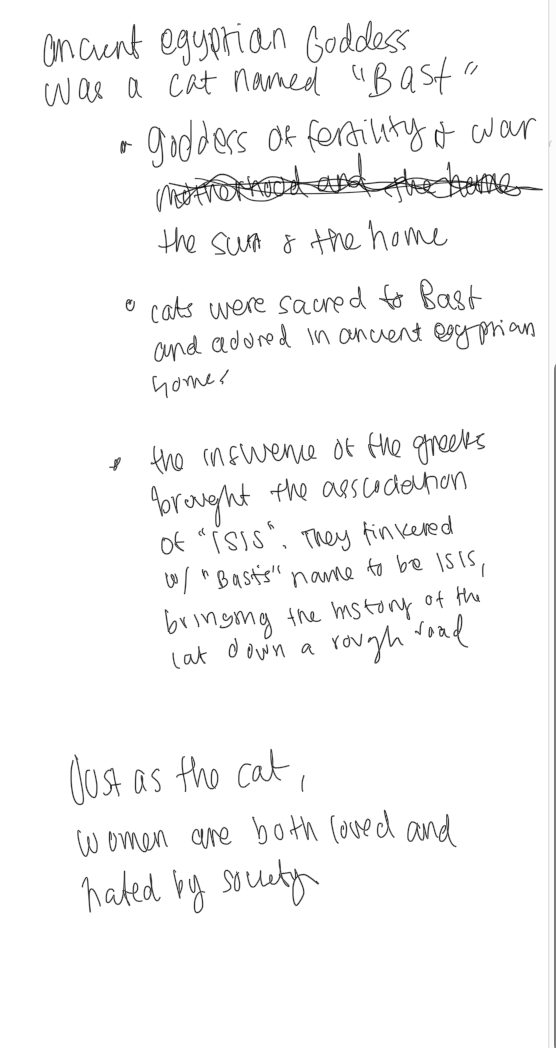 ancient egyptian Goddess
was a cat named "Bast"
• goddess of fertility & war
motherhood and the home
the sun & the home
• cats were sacred to Bast
and adored in ancient egyptian
homes
• the influence of the greeks
brought the association
of "ISIS". They tinkered
w/ "Basts" name to be ISIS,
bringing the history of the
cat down a rough road
Just as the cat,
women are both loved and
hated by society